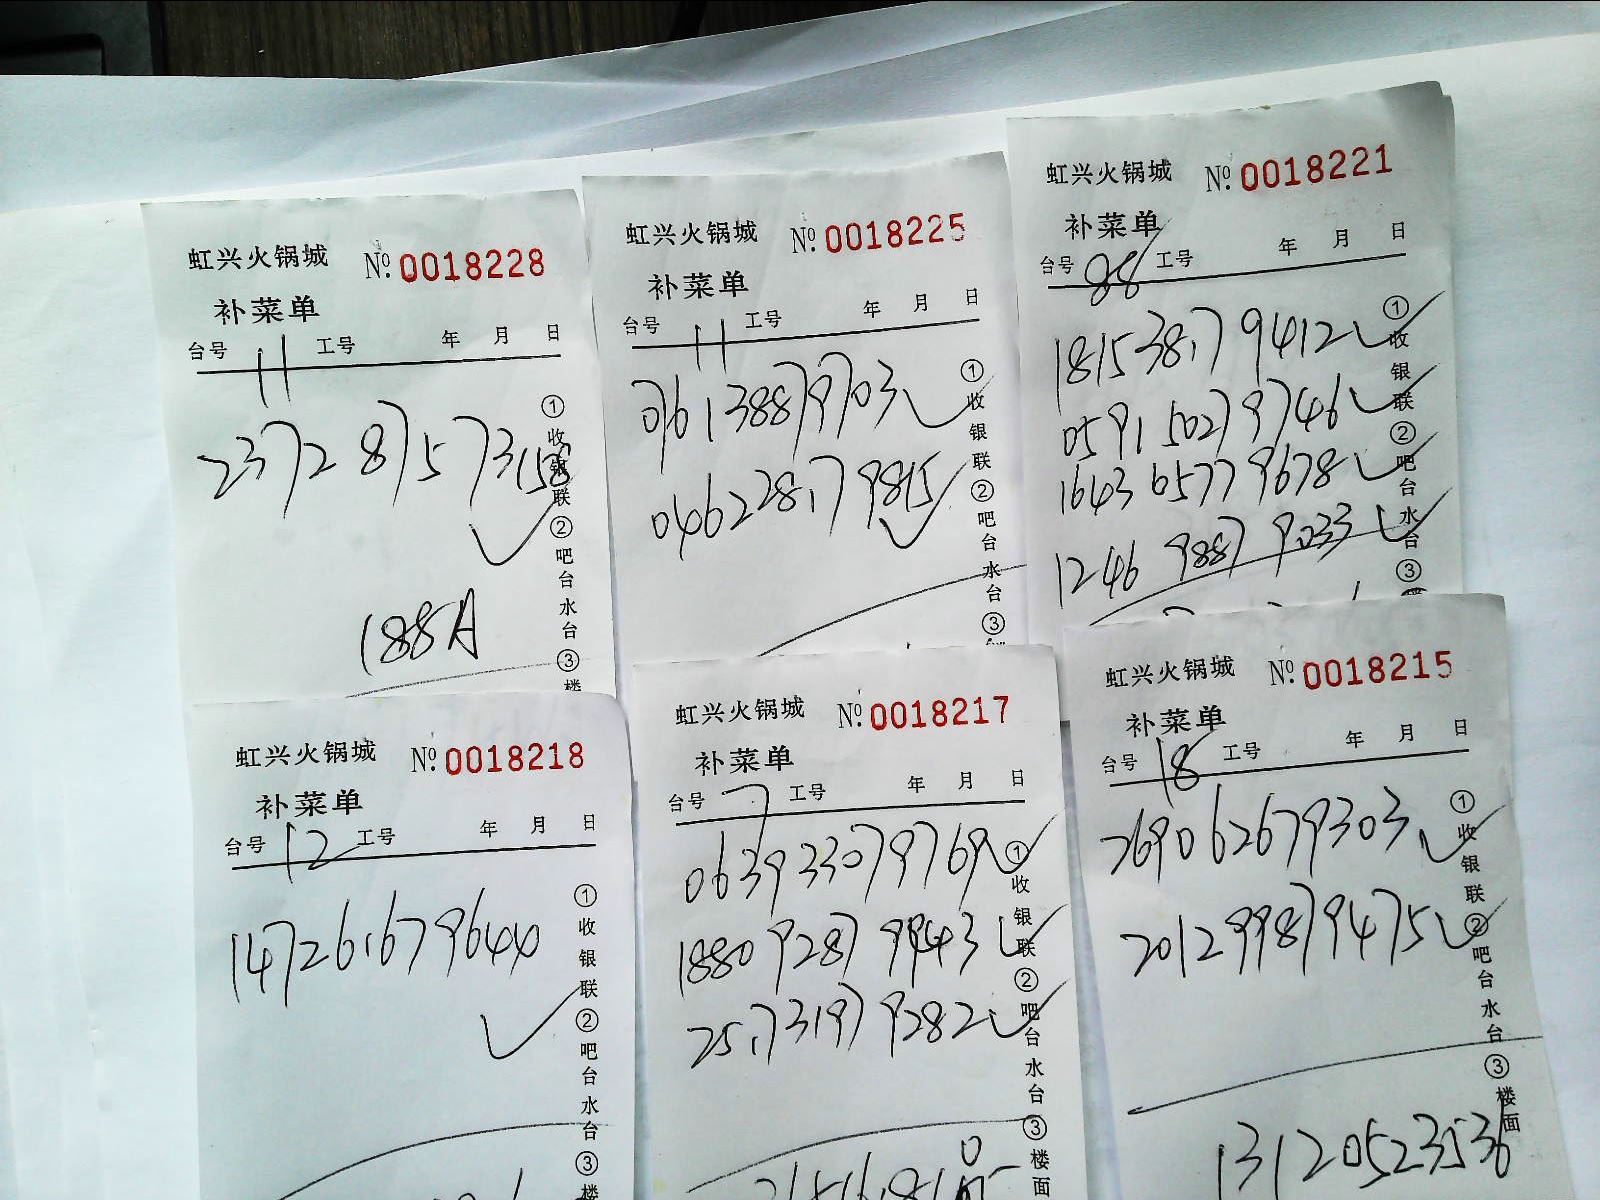 虹兴火锅城 №. 0018228
补菜单
台号 11 工号 年 月 日
2372 875 73158
①收银联②吧台水台③楼
188A
虹兴火锅城 №. 0018225
补菜单
台号 11 工号 年 月 日
076138879703
046228179815
①收银联②吧台水台③
虹兴火锅城 №. 0018221
补菜单
台号 88 工号 年 月 日
181538179412
059150279746
164365779678
124698879033
①收银联②吧台水台③
虹兴火锅城 №. 0018218
补菜单
台号 12 工号 年 月 日
147261679644
①收银联②吧台水台③楼
虹兴火锅城 №. 0018217
补菜单
台号 7 工号 年 月 日
063933079769
188092879943
251731979282
①收银联②吧台水台③楼面
虹兴火锅城 №. 0018215
补菜单
台号 18 工号 年 月 日
269062679303
201299879475
①收银联②吧台水台③楼面
13120523536